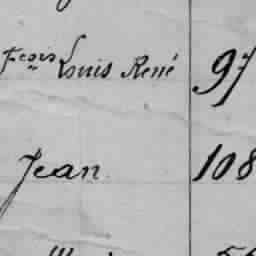 Fçois Louis René 97
Jean 108